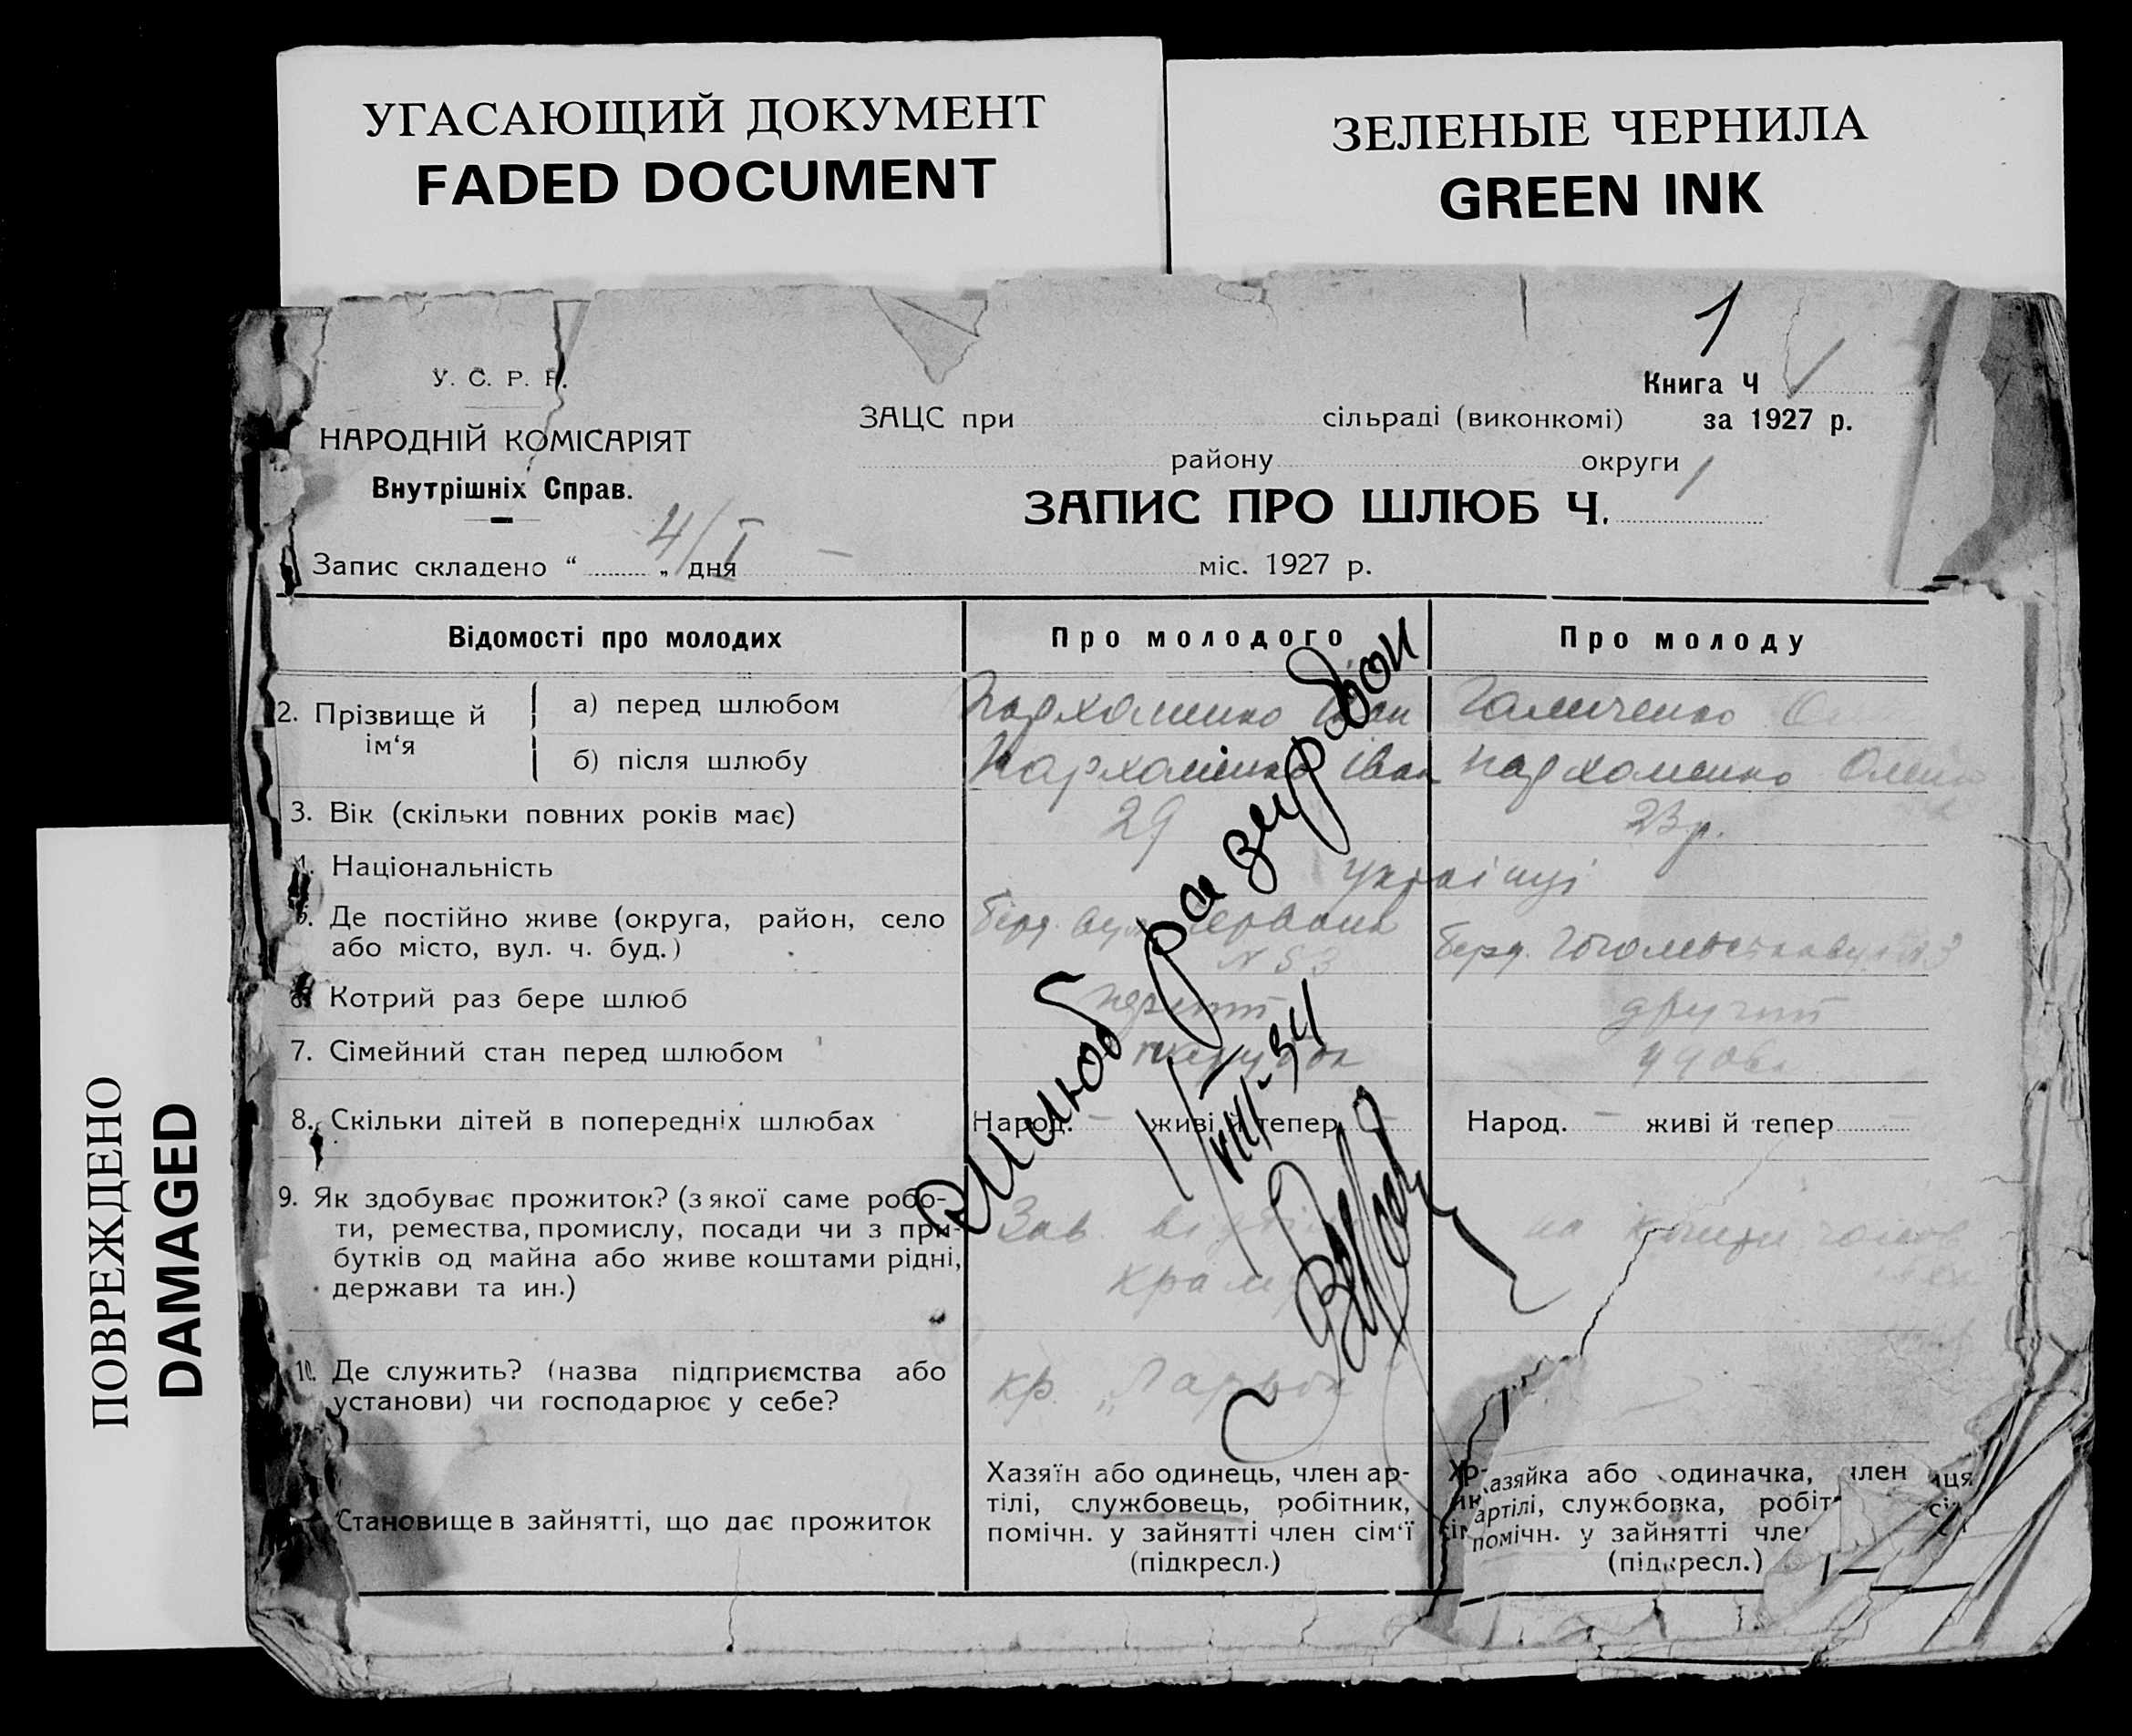 УГАСАЮЩИЙ ДОКУМЕНТ
FADED DOCUMENT
ЗЕЛЕНЫЕ ЧЕРНИЛА
GREEN INK
ПОВРЕЖДЕНО
DAMAGED
1
У. С. Р. Р.
НАРОДНІЙ КОМІСАРІЯТ
Внутрішніх Справ.
Книга Ч
ЗАЦС при сільраді (виконкомі) за 1927 р.
району округи
ЗАПИС ПРО ШЛЮБ Ч. 1
Запис складено “ 4/I „ дня міс. 1927 р.
Відомості про молодих Про молодого Про молоду
2. Прізвище й ім‘я
а) перед шлюбом Пархоменко Іван
б) після шлюбу Пархоменко Іван Пархоменко Олена
3. Вік (скільки повних років має) 29 23 р.
4. Національність українці
5. Де постійно живе (округа, район, село
або місто, вул. ч. буд.)
Берд. вул. Червона
Берд.
6. Котрий раз бере шлюб перший другий
7. Сімейний стан перед шлюбом парубок удова
8. Скільки дітей в попередніх шлюбах Народ. – живі й тепер – Народ. – живі й тепер
9. Як здобуває прожиток? (з якої саме робо-
ти, ремества, промислу, посади чи з при-
бутків од майна або живе коштами рідні,
держави та ин.)
Зав.
на кошти
10. Де служить? (назва підприємства або
установи) чи господарює у себе?
кр.
Становище в зайнятті, що дає прожиток
Хазяїн або одинець, член ар-
тілі, службовець, робітник,
помічн. у зайнятті член сім‘ї
(підкресл.)
азяйка або одиначка, член
артілі, службовка, робіт
помічн. у зайнятті чле
(підкресл.)
Шлюб
VIII-34